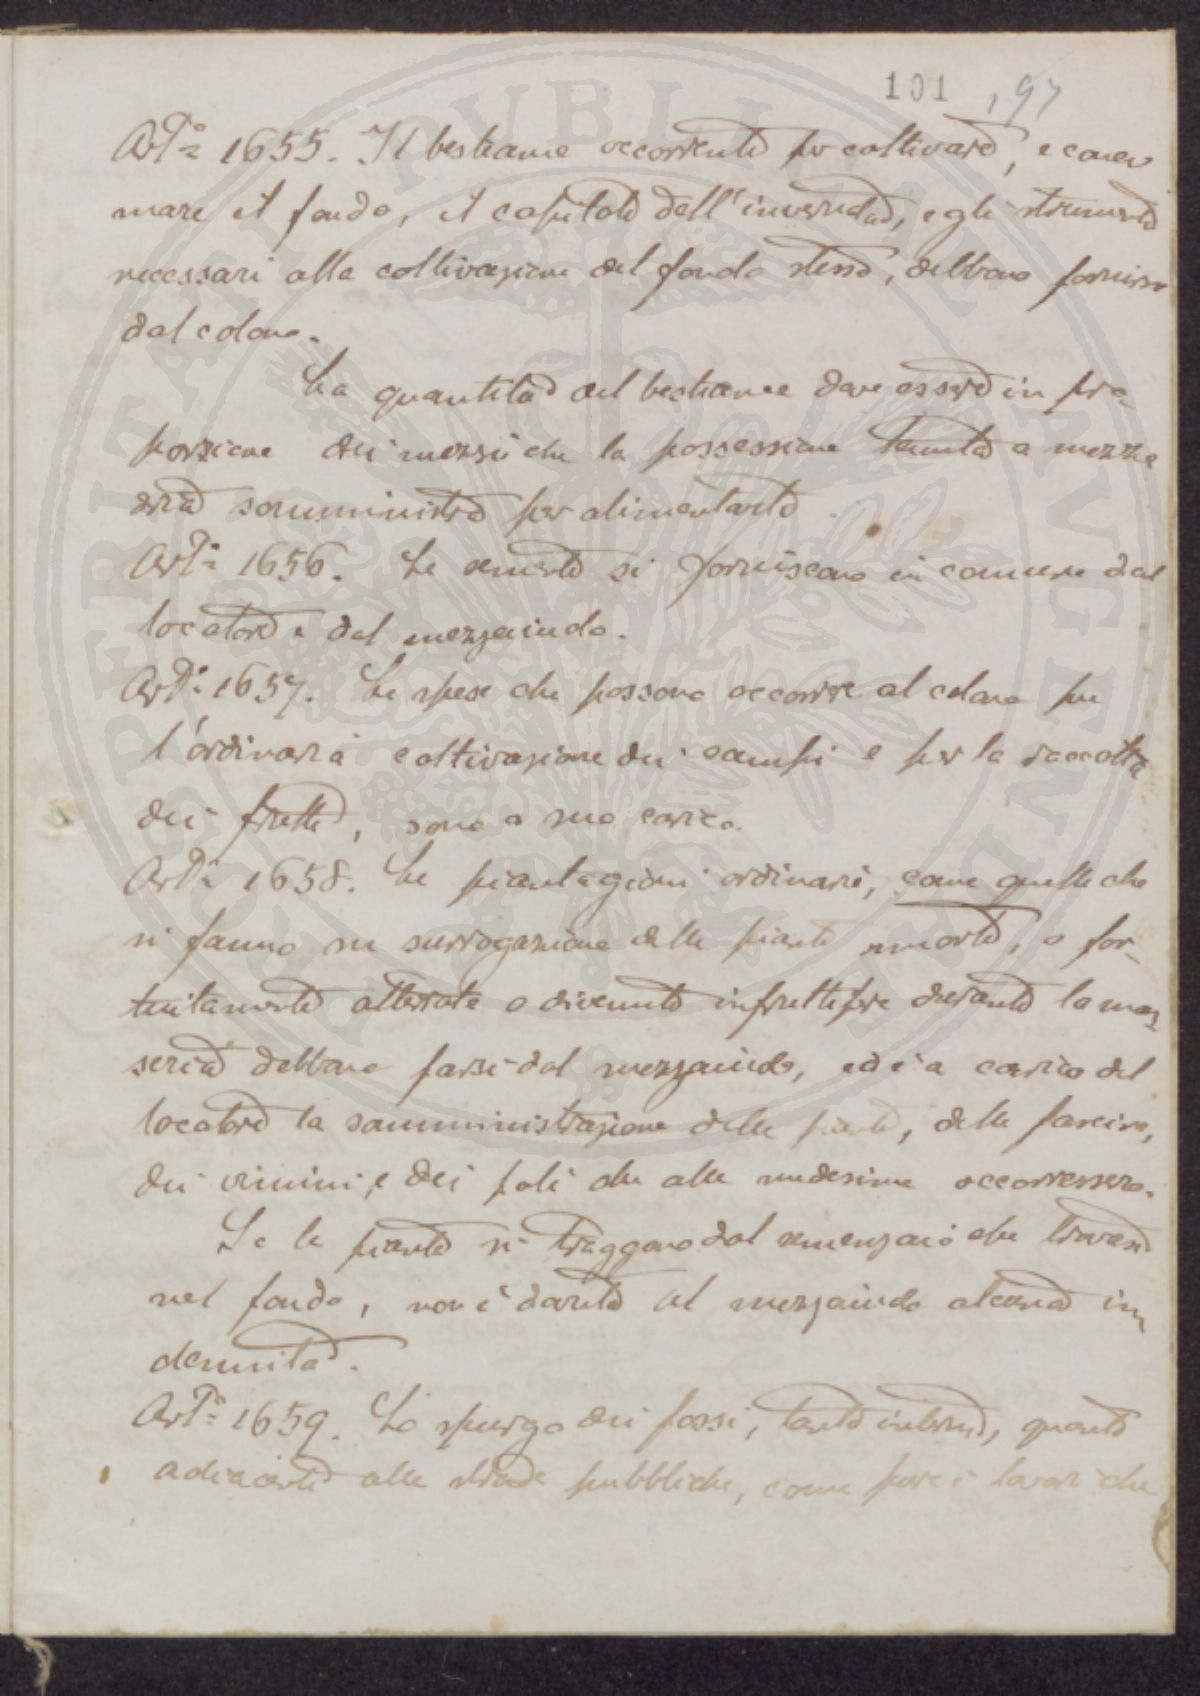 101 197
Art.° 1655. Il bestiame occorrente per coltivare, e conci
mare il fondo, il capitale dell'invernata, e gli strumenti
necessari alla coltivazione del fondo stesso, debbono fornirsi
dal colono.
La quantità del bestiame deve essere in pro-
porzione dei mezzi che la possessione tenuta a mezza
dria somministra per alimentarlo.
Art.° 1656. Le sementi si forniscono in comune dal
locatore e dal mezzaiuolo.
Art.° 1657. Le spese che possono occorrere al colono per
l'ordinaria coltivazione dei campi e per la raccolta
dei frutti, sono a suo carico.
Art.° 1658. Le piantagioni ordinarie, come quelle che
si fanno in surrogazione delle piante morte, o for-
tuitamente atterrate o divenute infruttifere durante la mas
seria debbono farsi dal mezzaiuolo, ed è a carico del
locatore la somministrazione delle piante, delle fascine,
dei vimini, e dei pali che alle medesime occorressero.
Se le piante si traggono dal semenzaio che trovasi
nel fondo, non è dovuta al mezzaiuolo alcuna in
dennità.
Art.° 1659. Lo spurgo dei fossi, tanto interni, quanto
adiacenti alle strade pubbliche, come pure i lavori che
PROSPERITATI PUBLICAE AUGENDAE